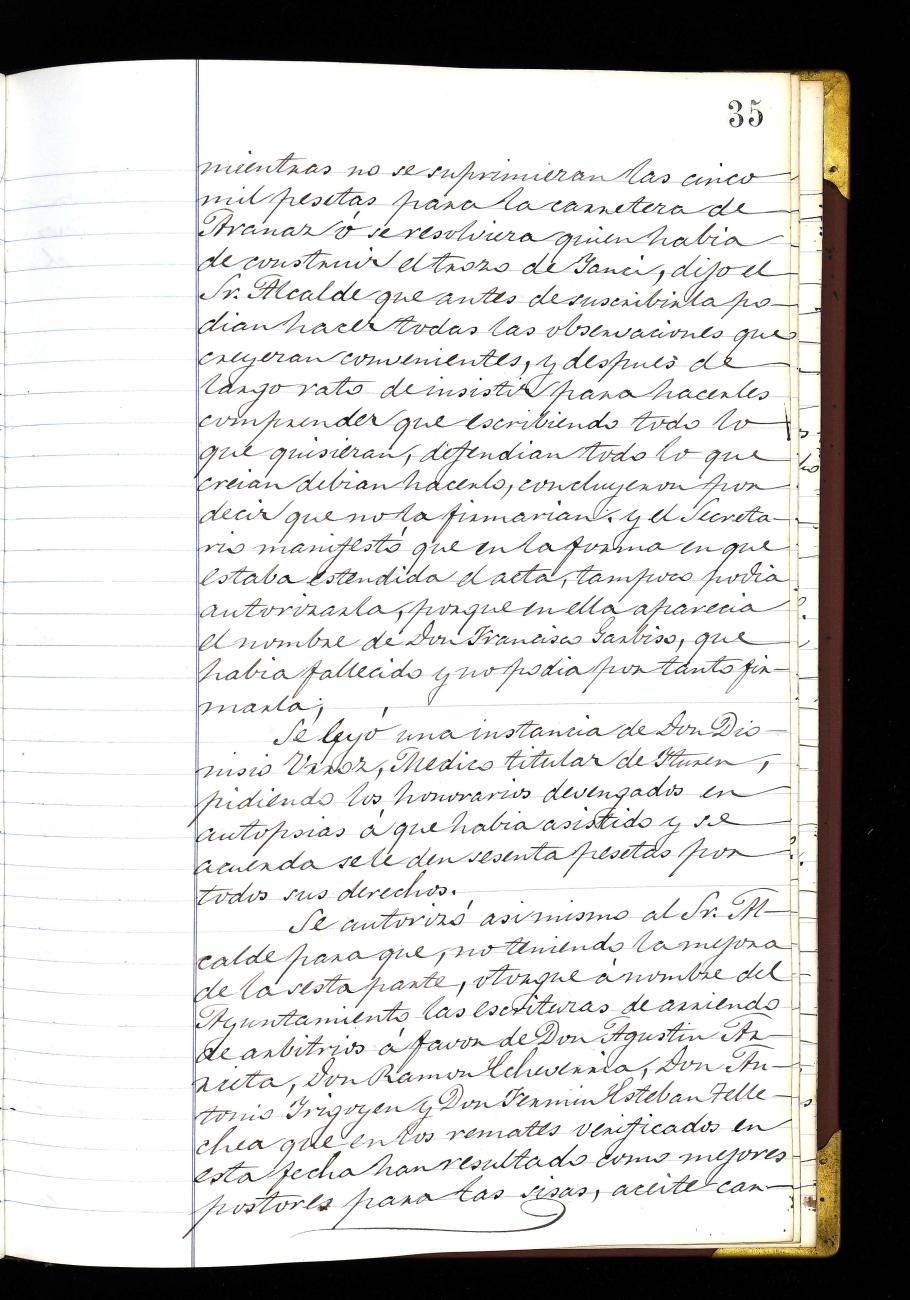 35
mientras no se suprimieran las cinco
mil pesetas para la carretera de
Aranaz ó se resolviera quien habia
de construir el trozo de Yanci, dijo el
Sr. Alcalde que antes de suscribirla po-
dian hacer todas las observaciones que
creyeran convenientes, y despues de
largo rato de insistir para hacerles
comprender que escribiendo todo lo
que quisieran, defendian todo lo que
creian debian hacerlo, concluyeron por
decir que no la firmarian: y el Secreta-
rio manifestó que en la forma en que
estaba estendida el acta, tampoco podia
autorizarla, porque en ella aparecia
el nombre de Don Francisco Garbiso, que
habia fallecido y no podia por tanto fir-
marla;
Se leyó una instancia de Don Dio-
nisio Urroz, Medico titular de Ituren,
pidiendo los honorarios devengados en
autopsias á que habia asistido y se
acuerda se le den sesenta pesetas por
todos sus derechos.
Se autorizó asi mismo al Sr. Al-
calde para que, no teniendo la mejora
de la sesta parte, otorgue á nombre del
Ayuntamiento las escrituras de arriendo
de arbitrios á favor de Don Agustin Ar-
rieta, Don Ramon Echeverria, Don An-
tonio Irigoyen y Don Fermin Esteban Telle-
chea que en los remates verificados en
esta fecha han resultado como mejores
postores para las sisas, aceite car-